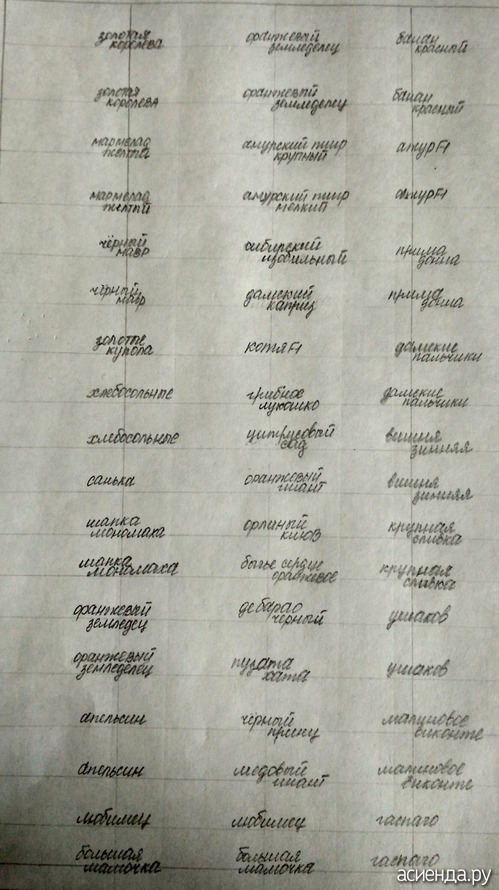 золотая королева оранжевый земледелец банан красный
золотая королева оранжевый земледелец банан красный
мармелад желтый амурский тигр крупный амур F1
мармелад желтый амурский тигр мелкий амур F1
чёрный мавр сибирский изобильный прима донна
чёрный мавр дамский каприз прима донна
золотые купола котя F1 дамские пальчики
хлебосольные грибное лукошко дамские пальчики
хлебосольные цитрусовый сад вишня зимняя
санька оранжевый гигант вишня зимняя
шапка мономаха орлиный клюв крупная сливка
шапка мономаха бычье сердце оранжевое крупная сливка
оранжевый земледец дебарао черный ушаков
оранжевый земледелец пузата хата ушаков
апельсин чёрный принц малиновое виконте
апельсин медовый гигант малиновое виконте
любимец любимец гаспаго
большая мамочка большая мамочка гаспаго
асиенда.ру